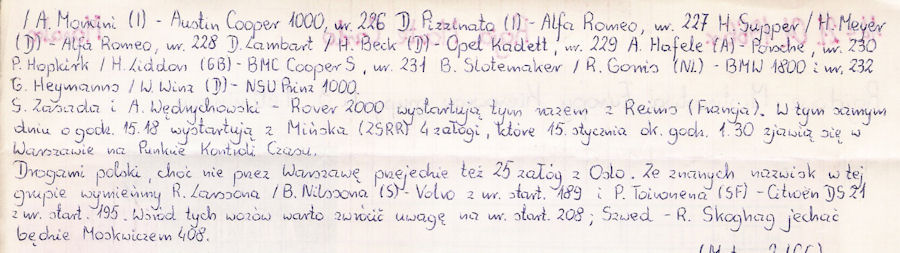 /A. Momini (I) - Austin Cooper 1000, nr. 226 D. Pizzinato (I) - Alfa Romeo, nr. 227 H. Supper / H. Meyer
(D) - Alfa Romeo, nr. 228 D. Lambart / H. Beck (D) - Opel Kadett, nr. 229 A. Hafele (A) - Porsche, nr. 230
P. Hopkirk / H. Liddon (GB) - BMC Cooper S, nr. 231 B. Slotemaker / R. Gonis (NL) - BMW 1800 i nr. 232
G. Heymanns / W. Winz (D) - NSU Prinz 1000.
S. Zasada i A. Wędrychowski - Rover 2000 wystartują tym razem z Reims (Francja). W tym samym
dniu o godz. 15.18 wystartują z Mińska (ZSRR) 4 załogi, które 15. stycznia ok. godz. 1.30 zjawią się w
Warszawie na Punkcie Kontroli Czasu.
Drogami polski, choć nie przez Warszawę przejedzie też 25 załóg z Oslo. Ze znanych nazwisk w tej
grupie wymieńmy R. Larssona / B. Nilssona (S) - Volvo z nr. start. 189 i P. Toivonena (SF) - Citroën DS 21
z nr. start. 195. Wśród tych wozów warto zwrócić uwagę na nr. start. 208; Szwed - R. Skoghag jechać
będzie Moskwiczem 408.